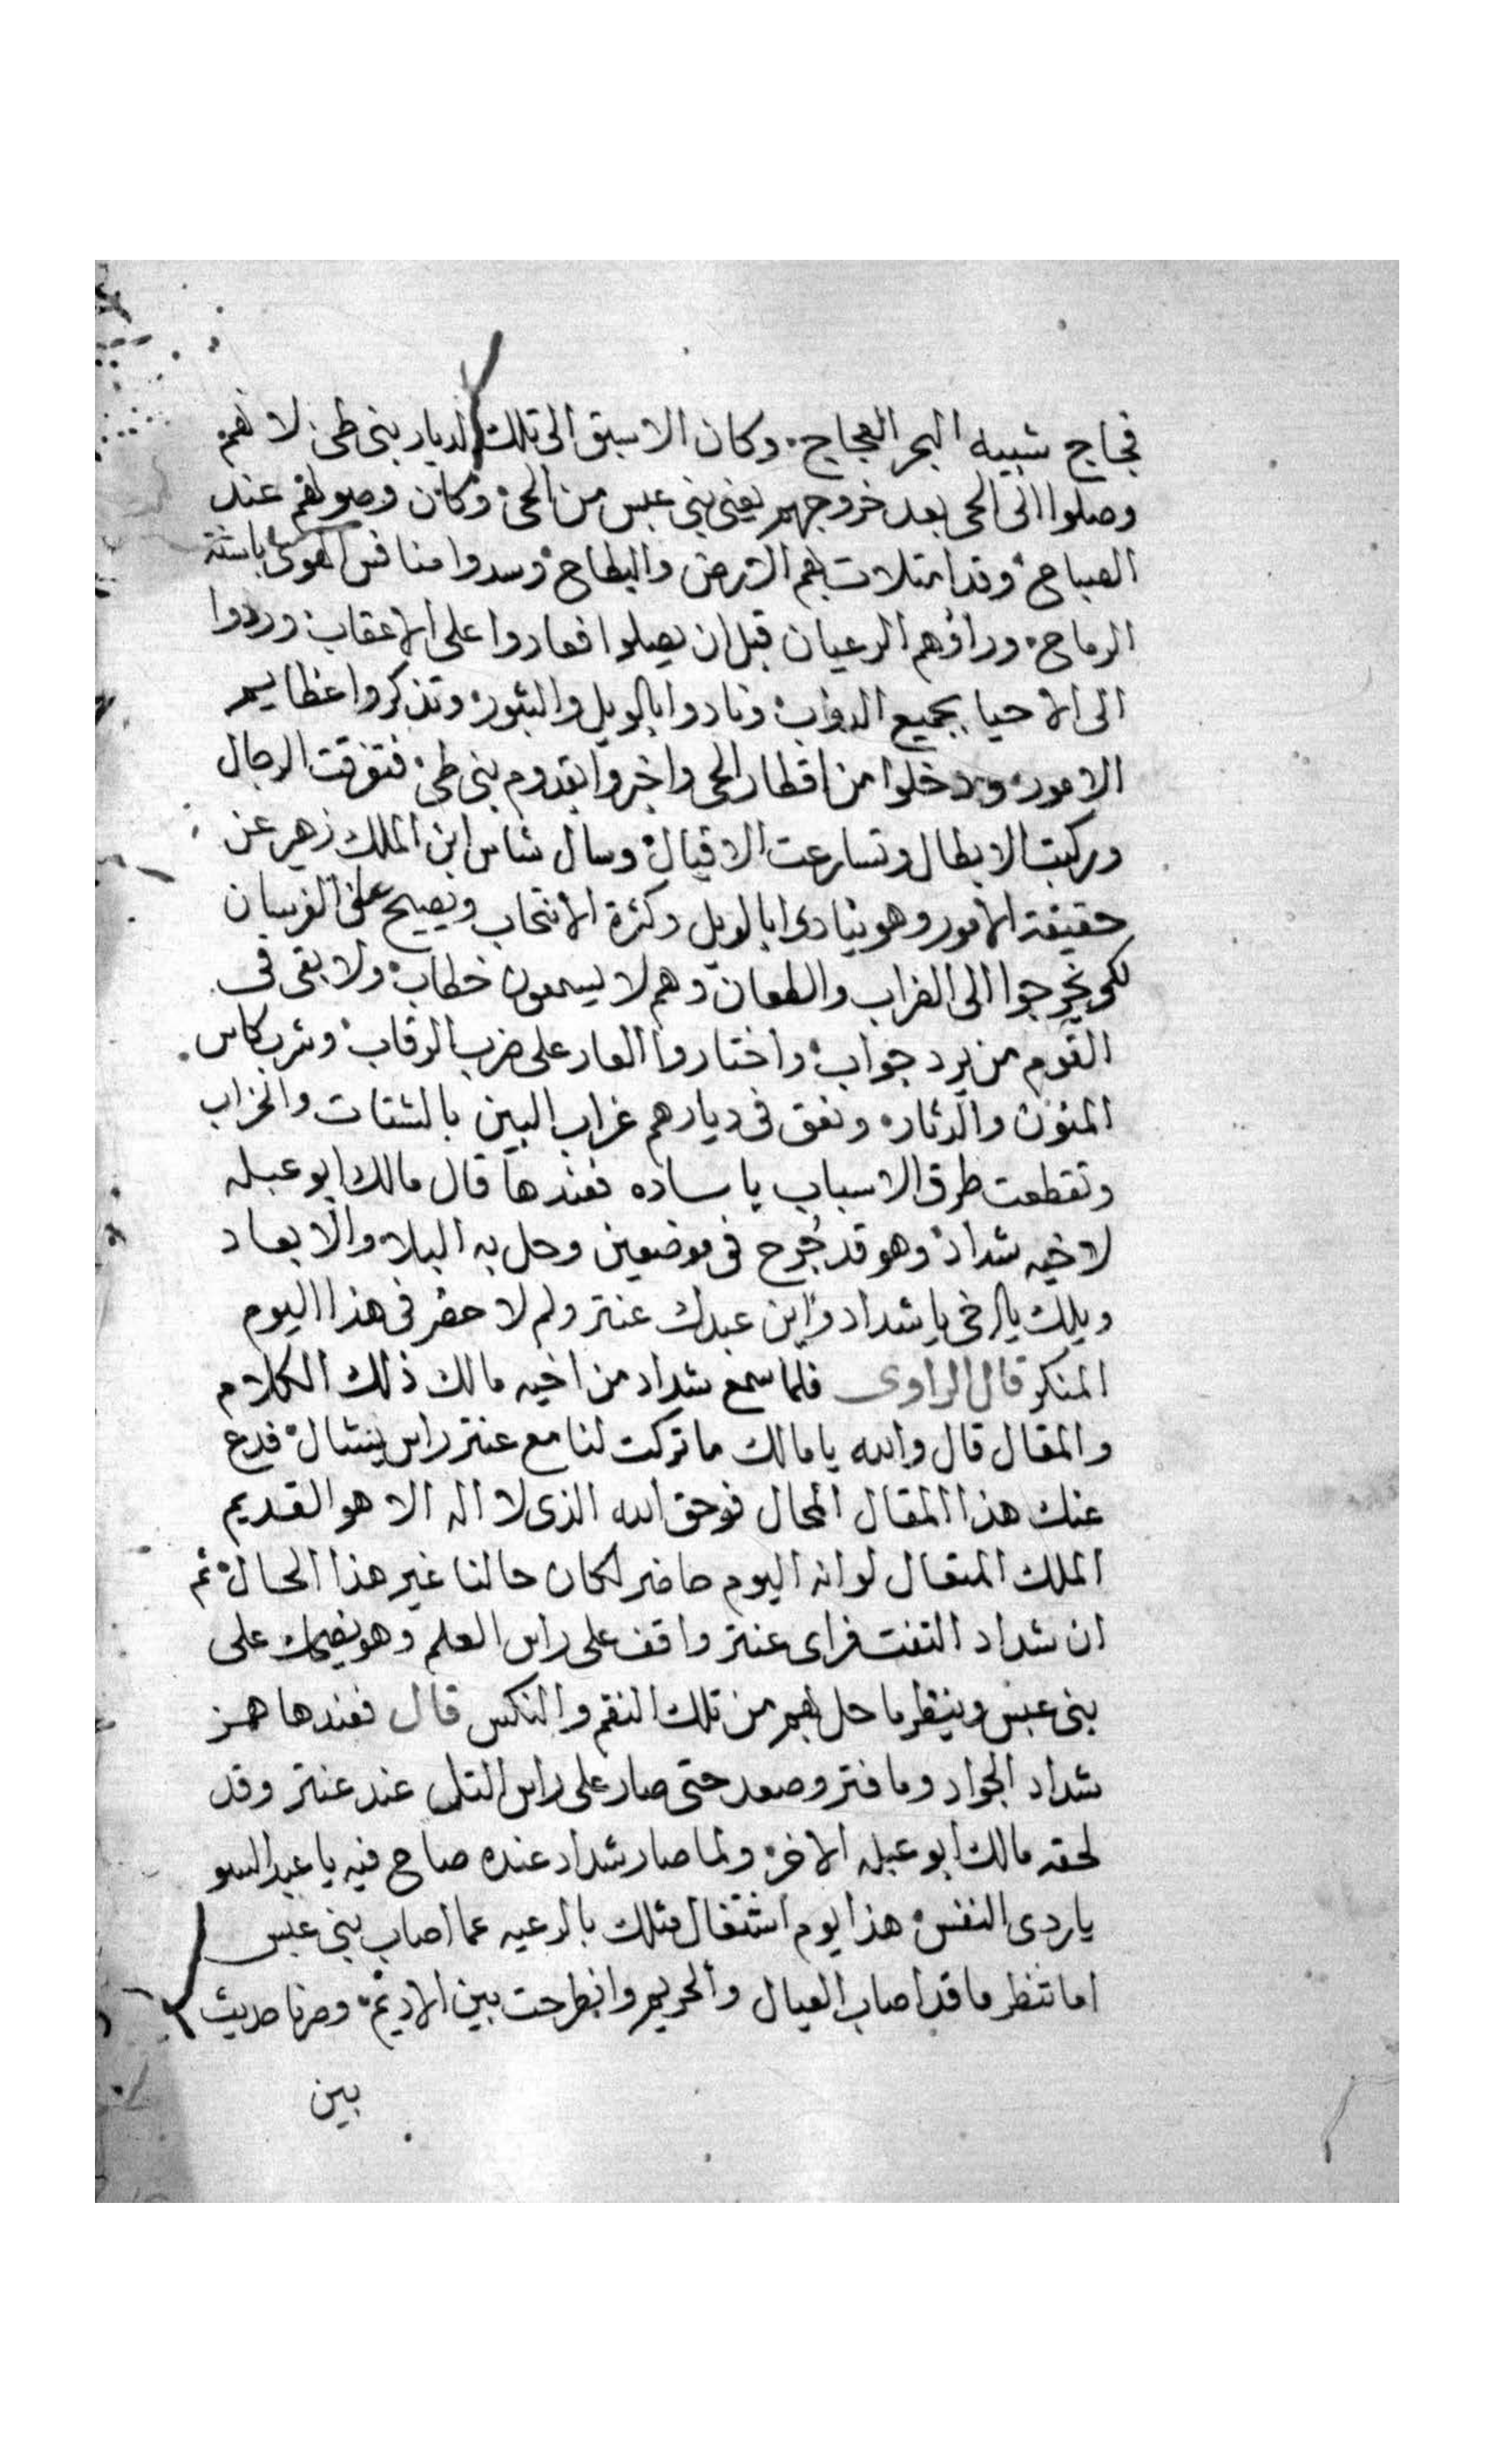 فجاج شبيه البحر العجاج، وكان الاسبق الى تلك الديار بنى طى، لانهم
وصلوا الى الحى بعد خروجهم يعنى بنى عبس من الحى، وكان وصولهم عند
الصباح، وقد امتلات بهم الارض والبطاح، وسدوا منافس الهوى باسنة
الرماح، وراؤهم الرعيان قبل ان يصلوا فعادوا على الاعقاب، وردوا
الى الاحيا بجميع الدواب، ونادوا بالويل والثبور، وتذكروا عظايم
الامور، ودخلوا من اقطار الحى واخبروا بقدوم بنى طى، فتفرقت الرجال
وركبت الابطال وتسارعت الاقيال، وسال شاس ابن الملك زهير عن
حقيقة الامور وهو ينادى ابالويل وكثرة الانتحاب ويصيح على الفرسان
لكى يخرجوا الى الضراب والطعان وهم لا يسمعون خطاب، ولا بقى فى
القوم من يرد جواب، واختاروا العار على ضرب الرقاب، وشرب كاس
المنون والدثار، ونعق فى ديارهم غراب البين بالشتات والخراب
وتقطعت طرق الاسباب يا ساده فعندها قال مالك ابو عبله
لاخيه شداد، وهو قد جُرح فى موضعين وحل به البلا، والابعاد
ويلك يا اخى يا شداد واين عبدك عنتر ولم لا حضر فى هذا اليوم
المنكر قال الراوى فلما سمع شداد من اخيه مالك ذلك الكلام
والمقال قال والله يا مالك ما تركت لنا مع عنتر راس ينشال، فدع
عنك هذا المقال المحال فوحق الله الذى لا اله الا هو القديم
الملك المتعال لو انه اليوم حاضر لكان حالنا غير هذا الحال، ثم
ان شداد التفت فراى عنتر واقف على راس العلم وهو يضحك على
بنى عبس وينظر ما حل بهم من تلك النقم والنكس قال فعندها همز
شداد الجواد وما فتر وصعد حتى صار على راس التل عند عنتر وقد
لحقه مالك ابو عبله الاخر، ولما صار شداد عنده صاح فيه يا عبد السو
يا ردى النفس، هذا يوم اشتغال مثلك بالرعيه عما اصاب بنى عبس
اما تنظر ما قد اصاب العيال والحريم وانطرحت بين الاديم، وصرنا حديث
بين